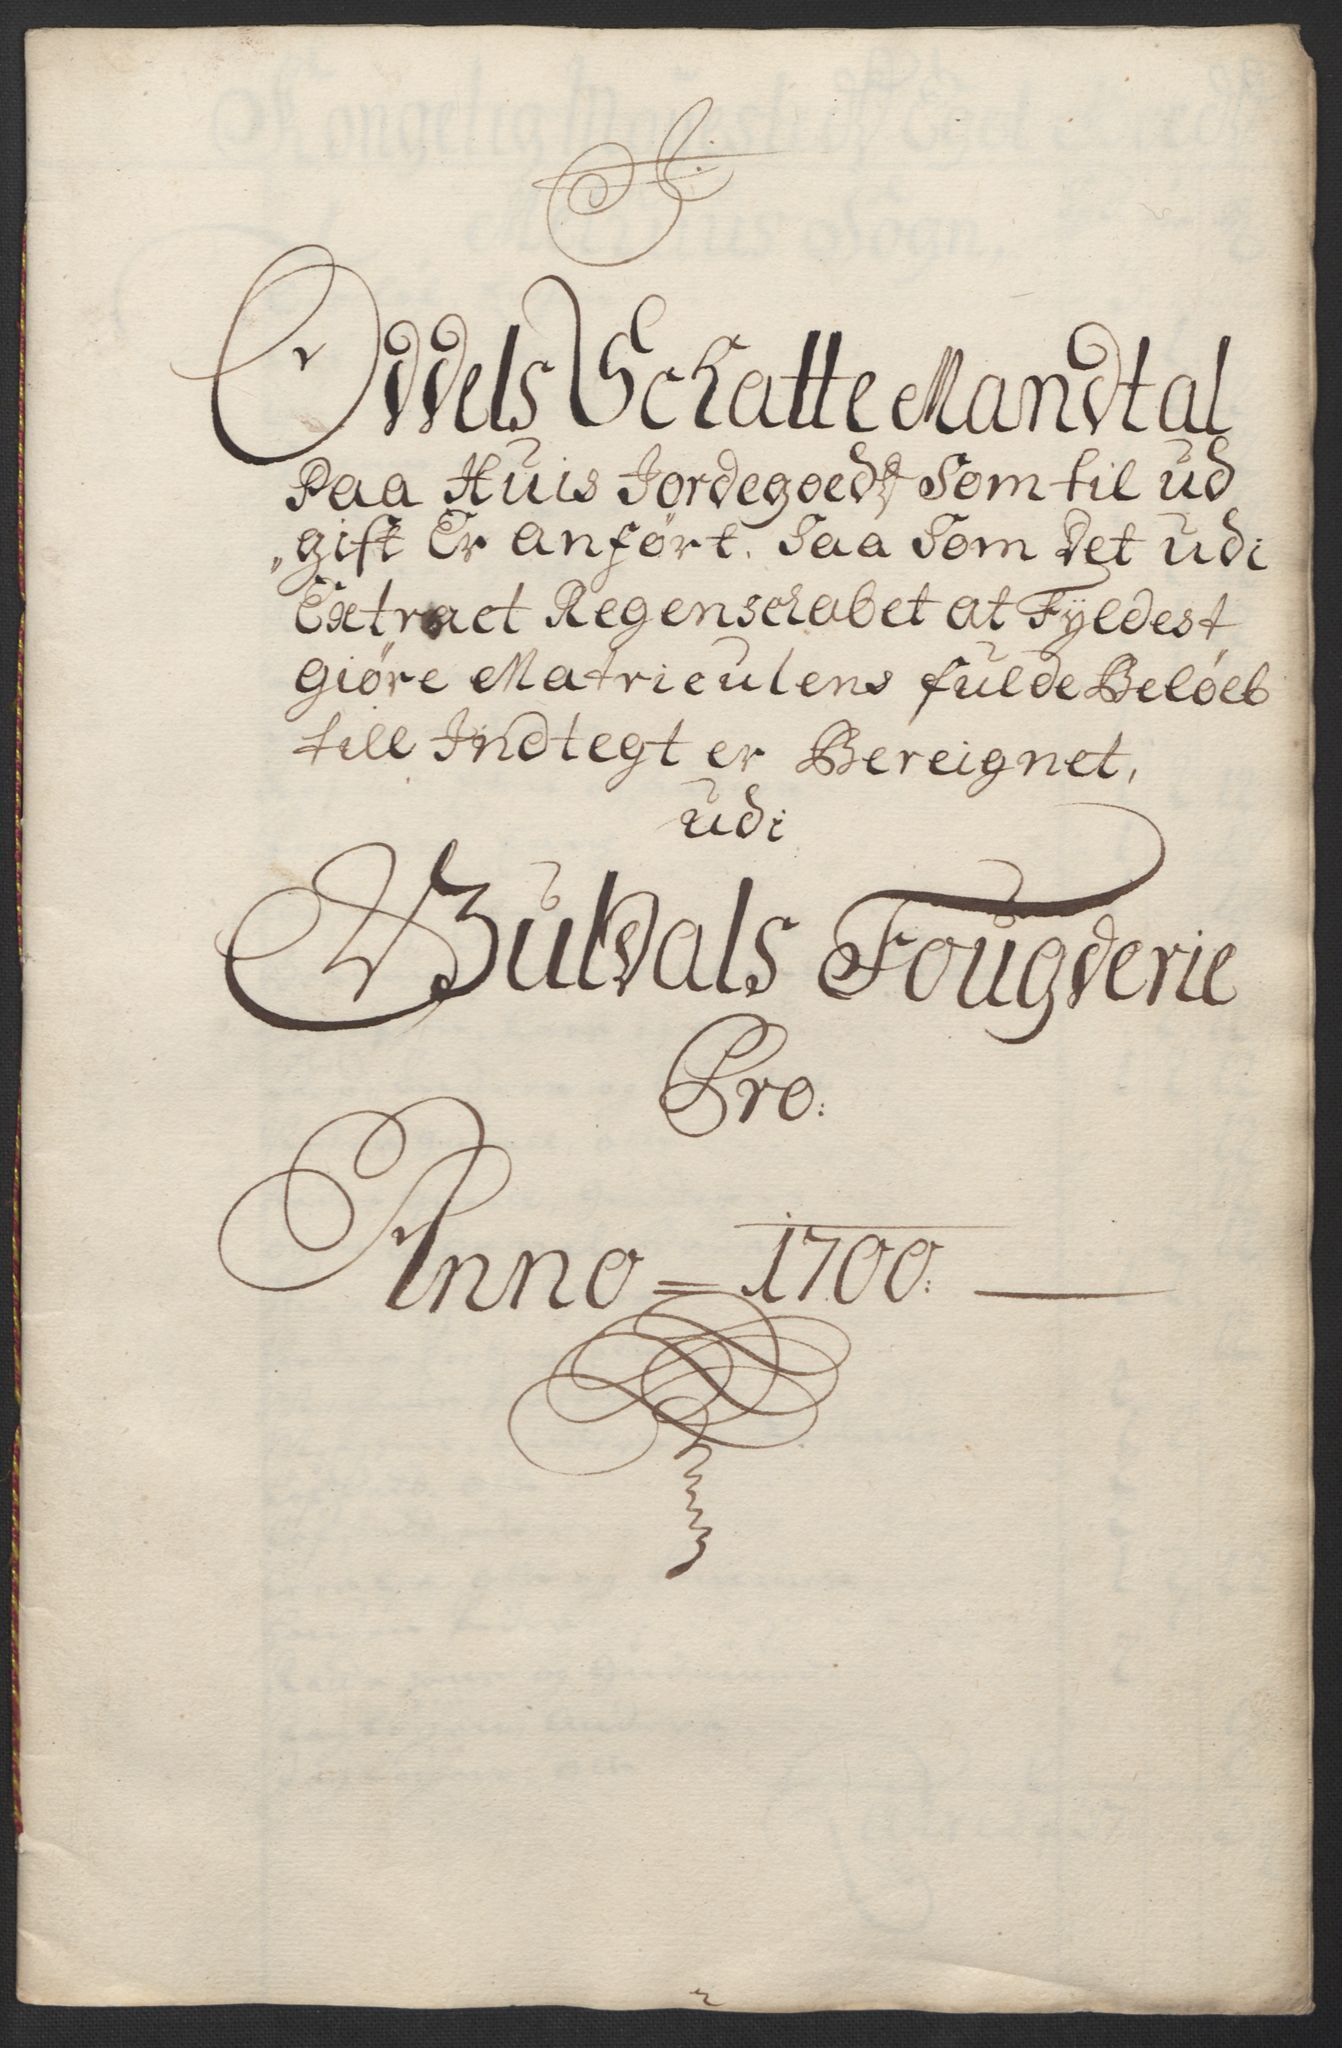 Odels Schatte Mandtal
Paa Huis Jordegoedtz Som til ud
„gift Er anført. Saa Som Det udi
Extract Regenschabet at Fyldest
giøre Matriculens fulde Beløeb
till Indtegt er Bereignet,
udi
Buldals Fougderie
Pro:
Anno = 1700: